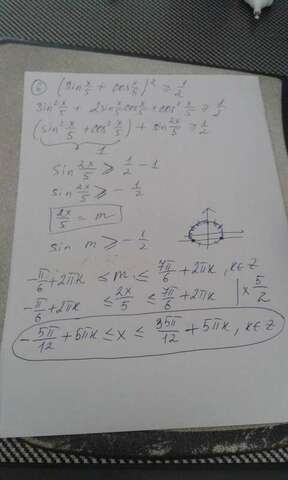 6) (sin x/5 + cos x/5)² ≥ 1/2
sin² x/5 + 2sin x/5 cos x/5 + cos² x/5 ≥ 1/2
(sin² x/5 + cos² x/5) + sin 2x/5 ≥ 1/2
1
sin 2x/5 ≥ 1/2 - 1
sin 2x/5 ≥ - 1/2
2x/5 = m
sin m ≥ - 1/2
-π/6 + 2πk ≤ m ≤ 7π/6 + 2πk, k∈Z
-π/6 + 2πk ≤ 2x/5 ≤ 7π/6 + 2πk | × 5/2
-5π/12 + 5πk ≤ x ≤ 35π/12 + 5πk, k∈Z